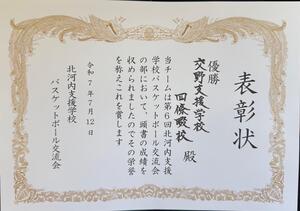 表彰状
優勝
交野支援学校
四條畷校 殿
当チームは第6回北河内支援
学校バスケットボール交流会
の部において、頭書の成績を
収められましたのでその栄誉
を称えこれを賞します
令和7年7月12日
北河内支援学校
バスケットボール交流会